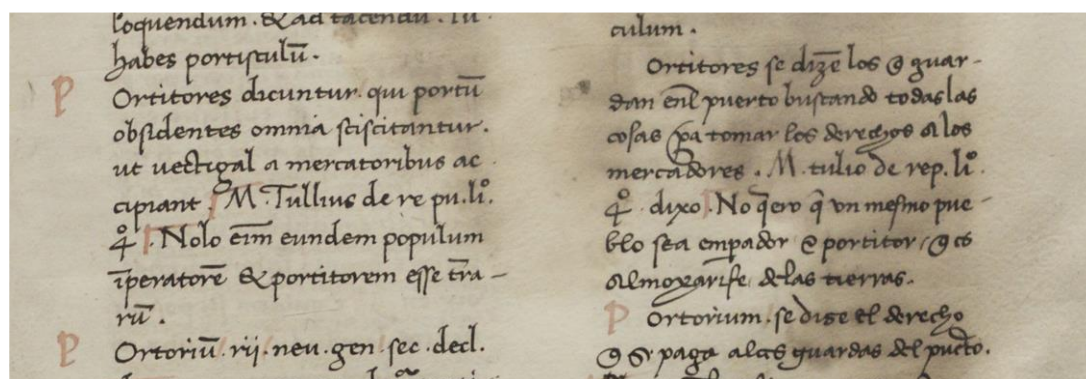 loquendum. & ad tacendū. Tu
habes portisculū.
P Ortitores dicuntur. qui portū
obsidentes omnia sciscitantur.
ut vectigal a mercatoribus ac
cipiant. M. Tullius de re pu. li.º
4º. Nolo eim̄ eundem populum
īperatorē & portitorem esse trā-
rū.
P Ortoriū. rii. neu. gen. sec. decl.
culum.
Ortitores se dizē los q̄ guar-
dan enl̄ puerto buscando todas las
cosas pa tomar los derechos a los
mercadores. M. tulio de rep. li.º
4º. dixo. No q̄ero q̄ un mesmo pue-
blo sea empador e portitor, q̄ es
almoxarife de las tierras.
P Ortorium. se dise el derecho
q̄ se paga a las guardas del puerto.